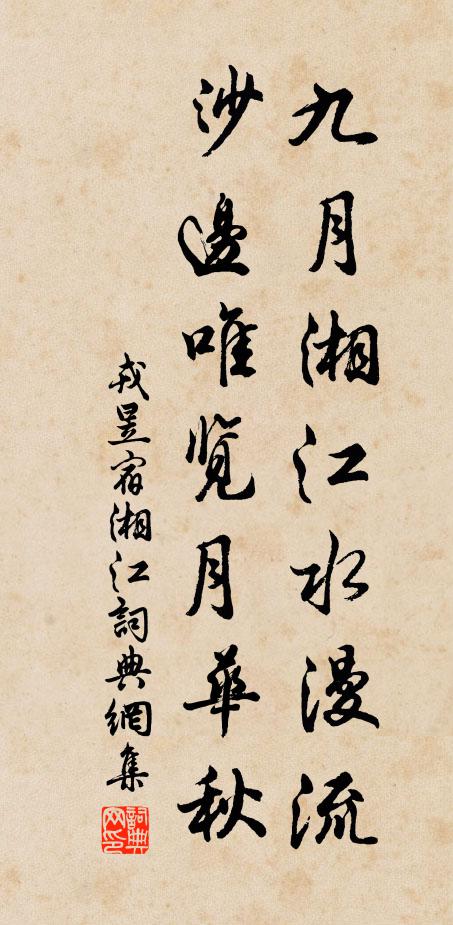 九月湘江水漫流
沙邊唯覽月華秋
戎昱宿湘江詞典網集
詞典網印